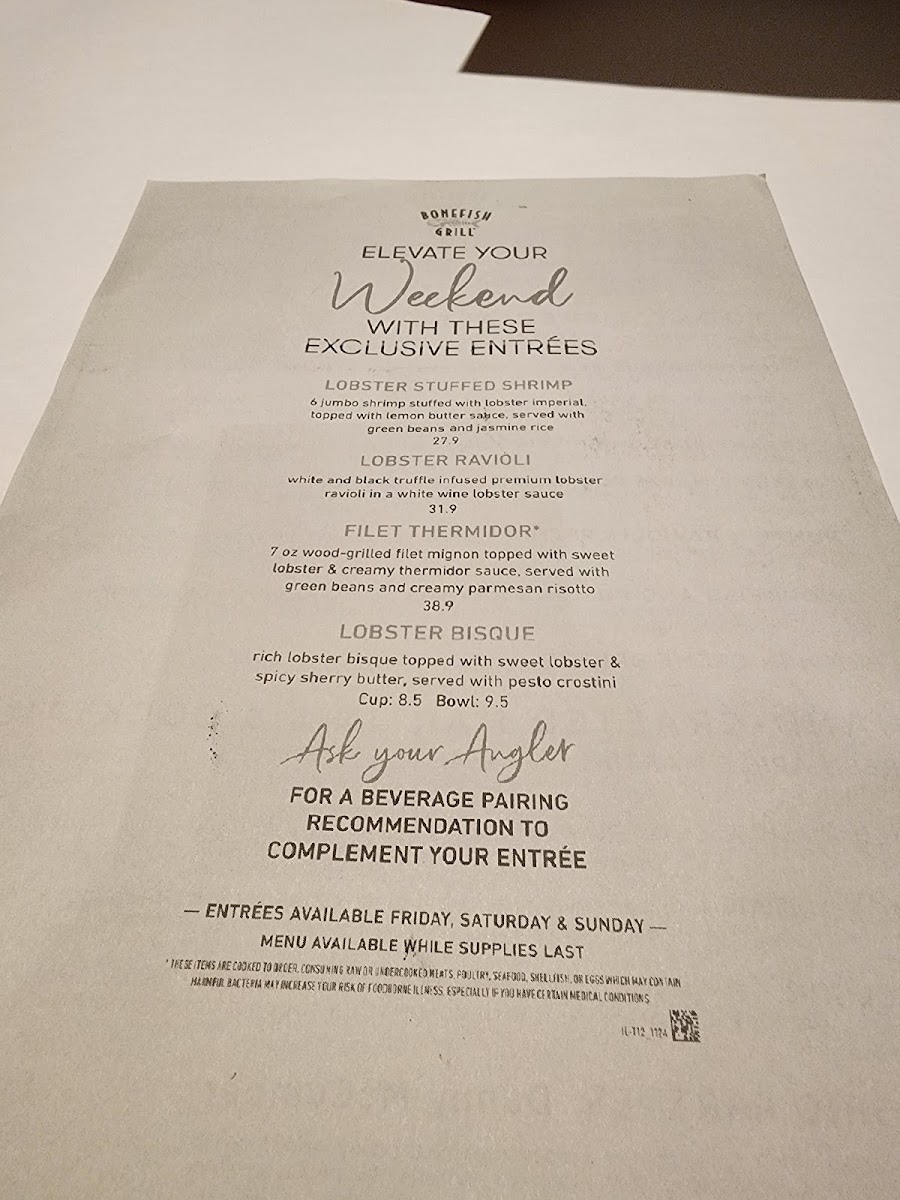 BONEFISH
GRILL
ELEVATE YOUR
Weekend
WITH THESE
EXCLUSIVE ENTRÉES
LOBSTER STUFFED SHRIMP
6 jumbo shrimp stuffed with lobster imperial,
topped with lemon butter sauce, served with
green beans and jasmine rice
27.9
LOBSTER RAVIOLI
white and black truffle infused premium lobster
ravioli in a white wine lobster sauce
31.9
FILET THERMIDOR*
7 oz wood-grilled filet mignon topped with sweet
lobster & creamy thermidor sauce, served with
green beans and creamy parmesan risotto
38.9
LOBSTER BISQUE
rich lobster bisque topped with sweet lobster &
spicy sherry butter, served with pesto crostini
Cup: 8.5 Bowl: 9.5
Ask your Angler
FOR A BEVERAGE PAIRING
RECOMMENDATION TO
COMPLEMENT YOUR ENTRÉE
— ENTRÉES AVAILABLE FRIDAY, SATURDAY & SUNDAY —
MENU AVAILABLE WHILE SUPPLIES LAST
* THESE ITEMS ARE COOKED TO ORDER. CONSUMING RAW OR UNDERCOOKED MEATS, POULTRY, SEAFOOD, SHELLFISH, OR EGGS WHICH MAY CONTAIN
HARMFUL BACTERIA MAY INCREASE YOUR RISK OF FOODBORNE ILLNESS, ESPECIALLY IF YOU HAVE CERTAIN MEDICAL CONDITIONS
IL-T12_1124